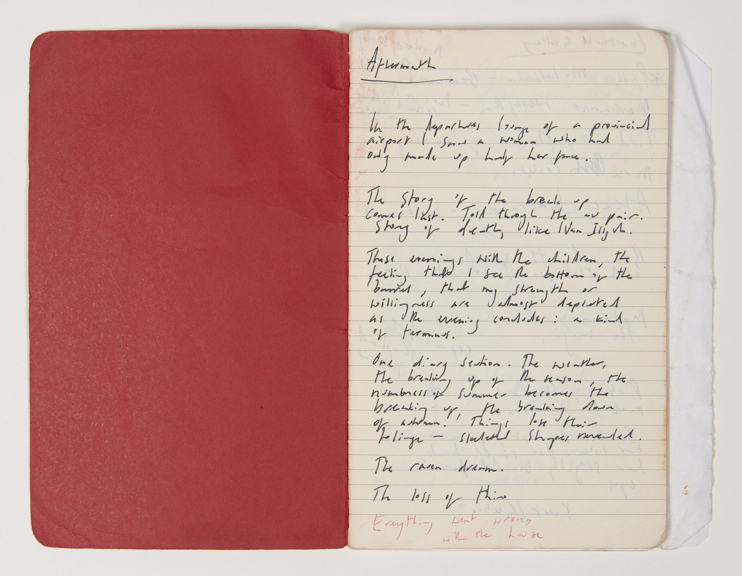 Aftermath
In the departures lounge of a provincial
airport I saw a woman who had
only made up half her face.
The story of the break up
comes last. Told through the au pair.
Story of death, like Ivan Ilych.
Those evenings with the children, the
feeling that I see the bottom of the
barrel, that my strength or
willingness are almost depleted
as the evening concludes: a kind
of terminus.
One diary section. The weather,
the breaking up of the season, the
numbness of summer becomes the
breaking up, the breaking down
of autumn. Things lose their
foliage - skeletal shapes revealed.
The raven dream.
The loss of time
Everything went wrong
with the house